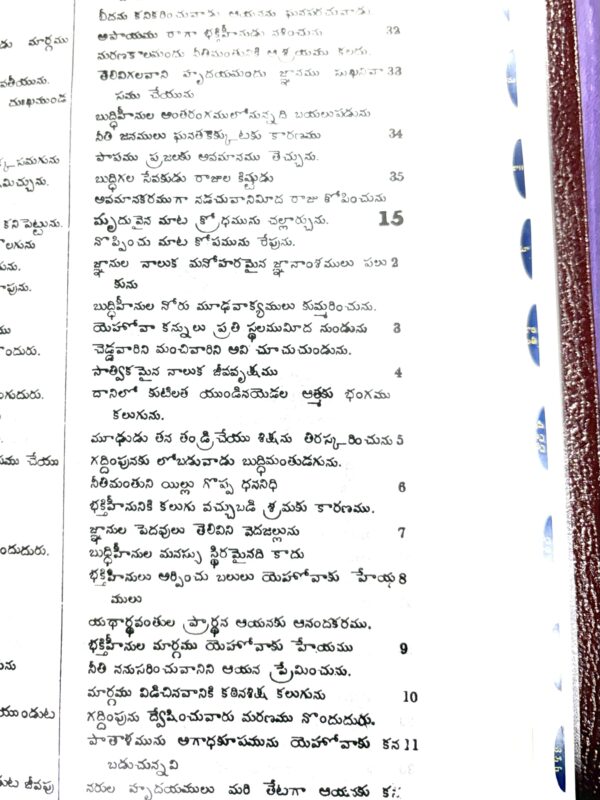 డు మార్గము
పతీయును.
దుఃఖముండ
సమగును
మిచ్చును.
కనిపెట్టును.
లగును
ను.
పును.
ము
ందురు.
గుదురు.
సము చేయు
ందుదురు.
ను
యుండుట
డుట జీవపు
బీదను కనికరించువాడు ఆయనను ఘనపరచువాడు
అపాయము రాగా భక్తిహీనుడు నశించును 32
మరణకాలమందు నీతిమంతునికి ఆశ్రయము కలదు.
తెలివిగలవాని హృదయమందు జ్ఞానము సుఖనివా 33
సము చేయును
బుద్ధిహీనుల అంతరంగములోనున్నది బయలుపడును
నీతి జనములు ఘనతకెక్కుటకు కారణము 34
పాపము ప్రజలకు అవమానము తెచ్చును.
బుద్ధిగల సేవకుడు రాజుల కిష్టుడు 35
అవమానకరముగా నడచువానిమీద రాజు కోపించును
మృదువైన మాట క్రోధమును చల్లార్చును. 15
నొప్పించు మాట కోపమును రేపును.
జ్ఞానుల నాలుక మనోహరమైన జ్ఞానాంశములు పలు 2
కును
బుద్ధిహీనుల నోరు మూఢవాక్యములు కుమ్మరించును.
యెహోవా కన్నులు ప్రతి స్థలముమీద నుండును 3
చెడ్డవారిని మంచివారిని అవి చూచుచుండును.
సాత్వికమైన నాలుక జీవవృక్షము 4
దానిలో కుటిలత యుండినయెడల ఆత్మకు భంగము
కలుగును.
మూఢుడు తన తండ్రిచేయు శిక్షను తిరస్కరించును 5
గద్దింపునకు లోబడువాడు బుద్ధిమంతుడగును.
నీతిమంతుని యిల్లు గొప్ప ధననిధి 6
భక్తిహీనునికి కలుగు వచ్చుబడి శ్రమకు కారణము.
జ్ఞానుల పెదవులు తెలివిని వెదజల్లును 7
బుద్ధిహీనుల మనస్సు స్థిరమైనది కాదు
భక్తిహీనులు అర్పించు బలులు యెహోవాకు హేయ 8
ములు
యథార్థవంతుల ప్రార్థన ఆయనకు ఆనందకరము.
భక్తిహీనుల మార్గము యెహోవాకు హేయము 9
నీతి ననుసరించువానిని ఆయన ప్రేమించును.
మార్గము విడిచినవానికి కఠినశిక్ష కలుగును 10
గద్దింపును ద్వేషించువారు మరణము నొందుదురు.
పాతాళమును అగాధకూపమును యెహోవాకు కన 11
బడుచున్నవి
నరుల హృదయములు మరి తేటగా ఆయనకు